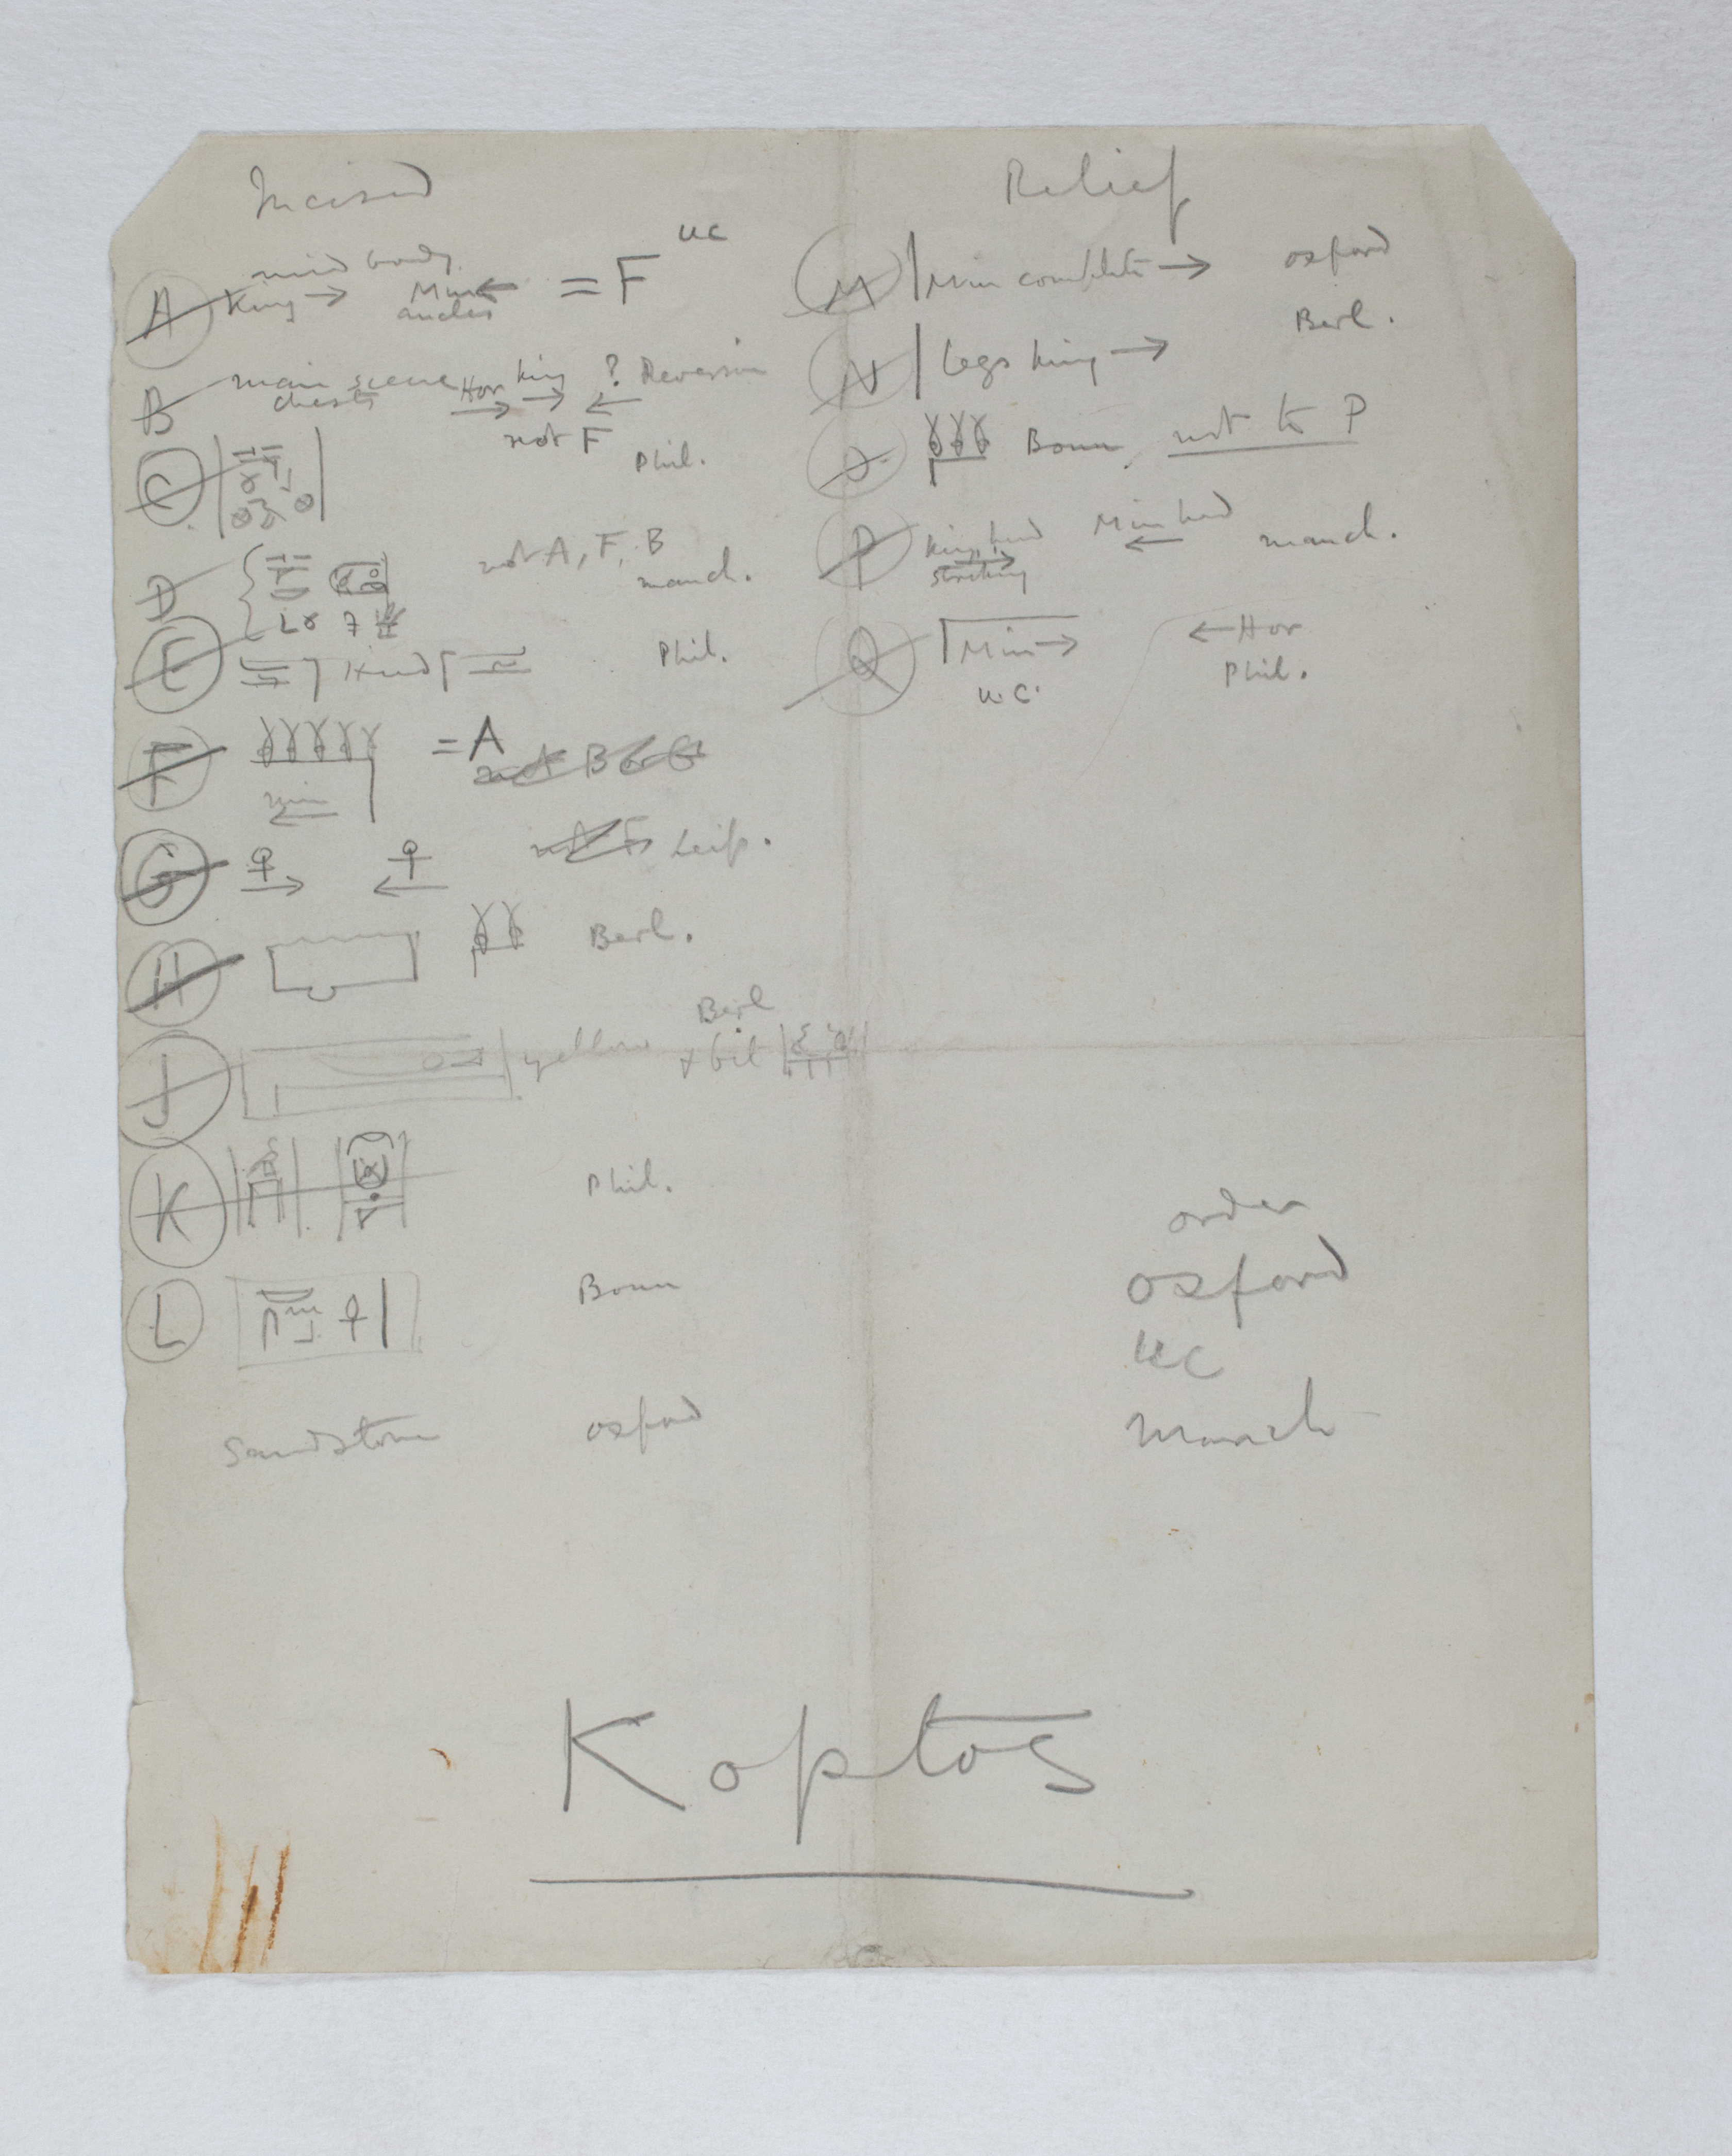 Incised
A mid body
King → Min ← = F UC
ancles
B main scene Hor King ? Reversion
chests → → ←
not F Phil.
C
D not A, F, B
manch.
E Head Phil.
F = A
Min ←
B
G → ← Leip.
H Berl.
J yellow Berl
+ bit
K Phil.
L Bonn
Sandstone Oxford
Relief
M Min complete → Oxford
Berl.
N Legs King →
O Bonn, not to P
P King head Min head manch.
→ ←
Q Min → ← Hor
U.C. Phil.
order
Oxford
UC
Manch
Koptos